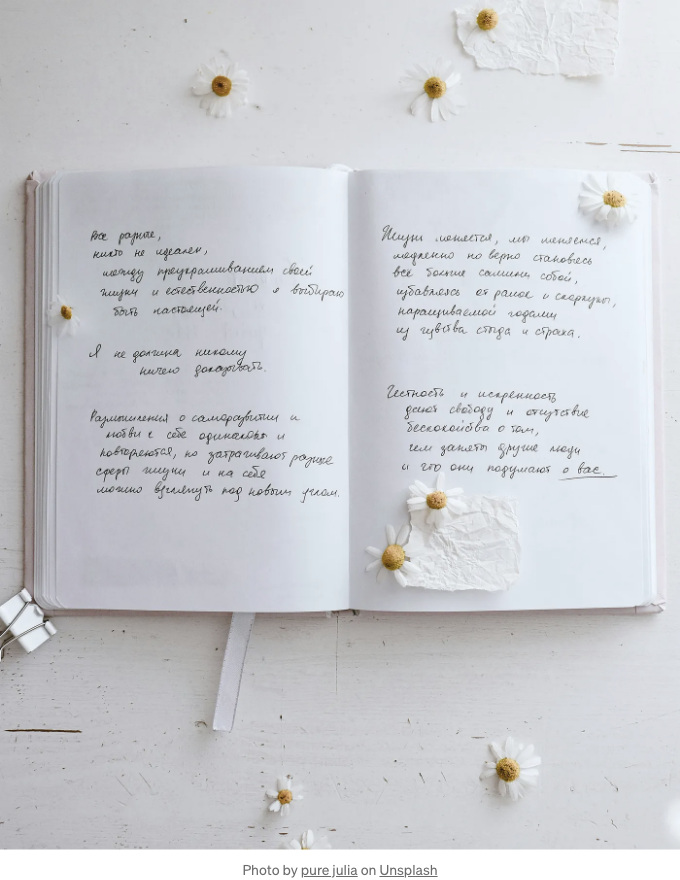 Все разные,
никто не идеален,
между приукрашиванием своей
жизни и естественностью я выбираю
быть настоящей.
Я не должна никому
ничего доказывать.
Размышления о саморазвитии и
любви к себе одинаково и
повторяются, но затрагивают разные
сферы жизни и на себя
можно взглянуть под новым углом.
Жизнь меняется, мы меняемся,
медленно но верно становясь
всё больше самими собой,
избавляясь от рамок и скорлупы,
наращиваемой годами
из чувства стыда и страха.
Честность и искренность
дают свободу и отсутствие
беспокойства о том,
чем заняты другие люди
и что они подумают о вас.
Photo by pure julia on Unsplash